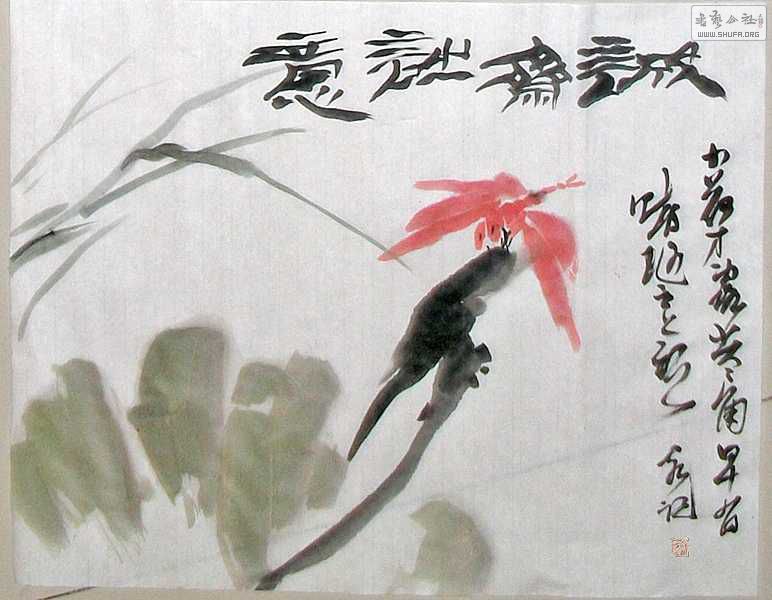 誠齋詩意
小荷才露尖尖角早有
蜻蜓立上頭
书艺公社
WWW.SHUFA.ORG